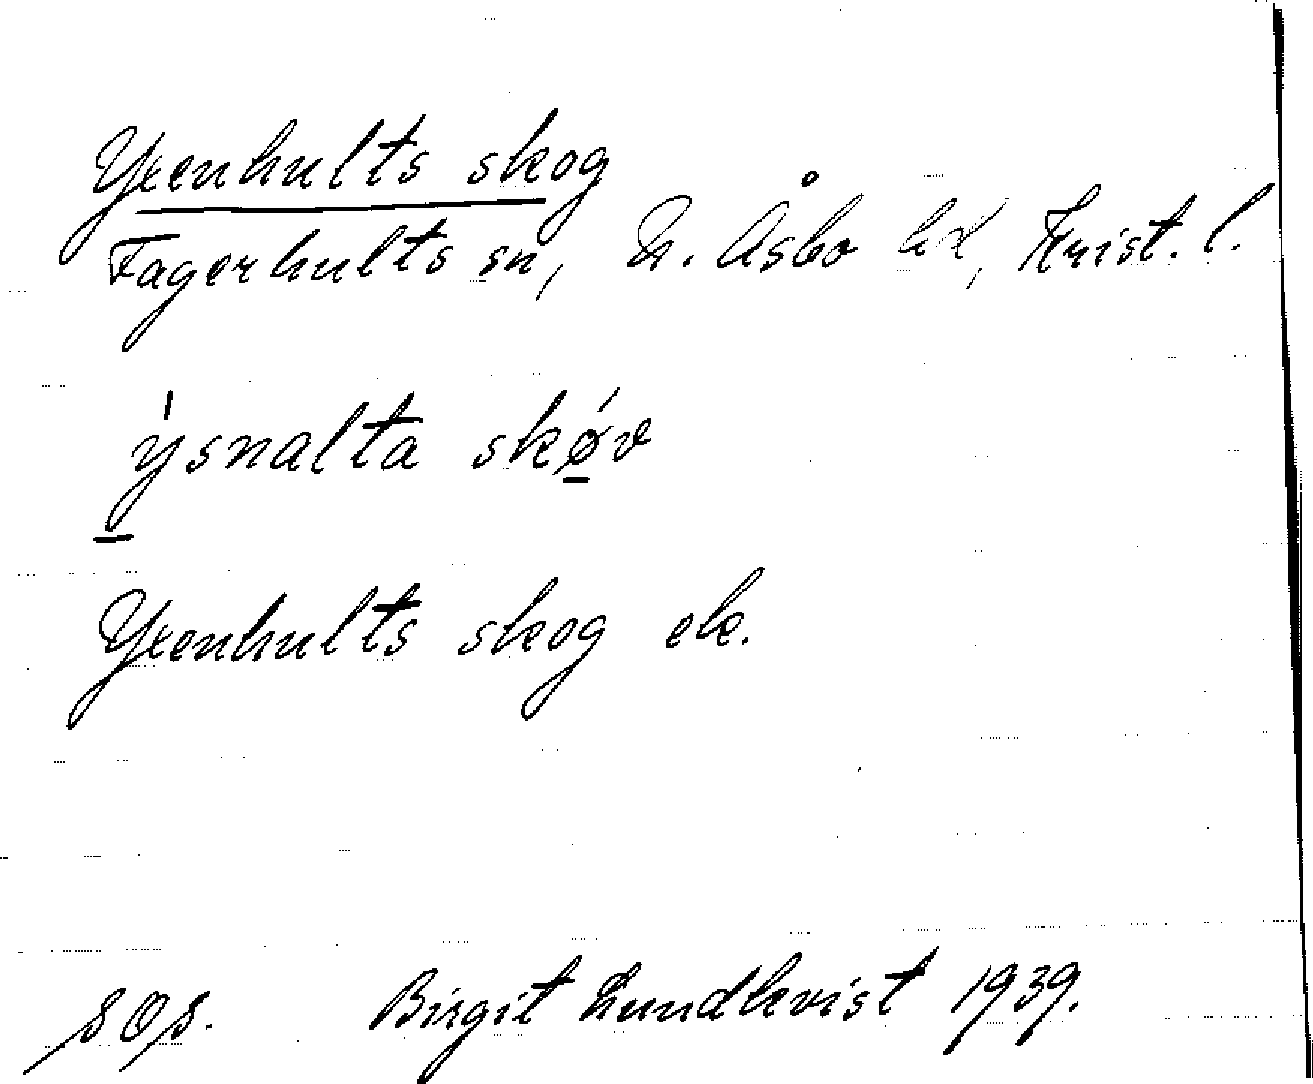 Yxenhults skog
Fagerhults sn, N. Åsbo hd, Krist. l.
ýsnalta skǿv
Yxenhults skog ek.
SOS. Birgit Lundkvist 1939.